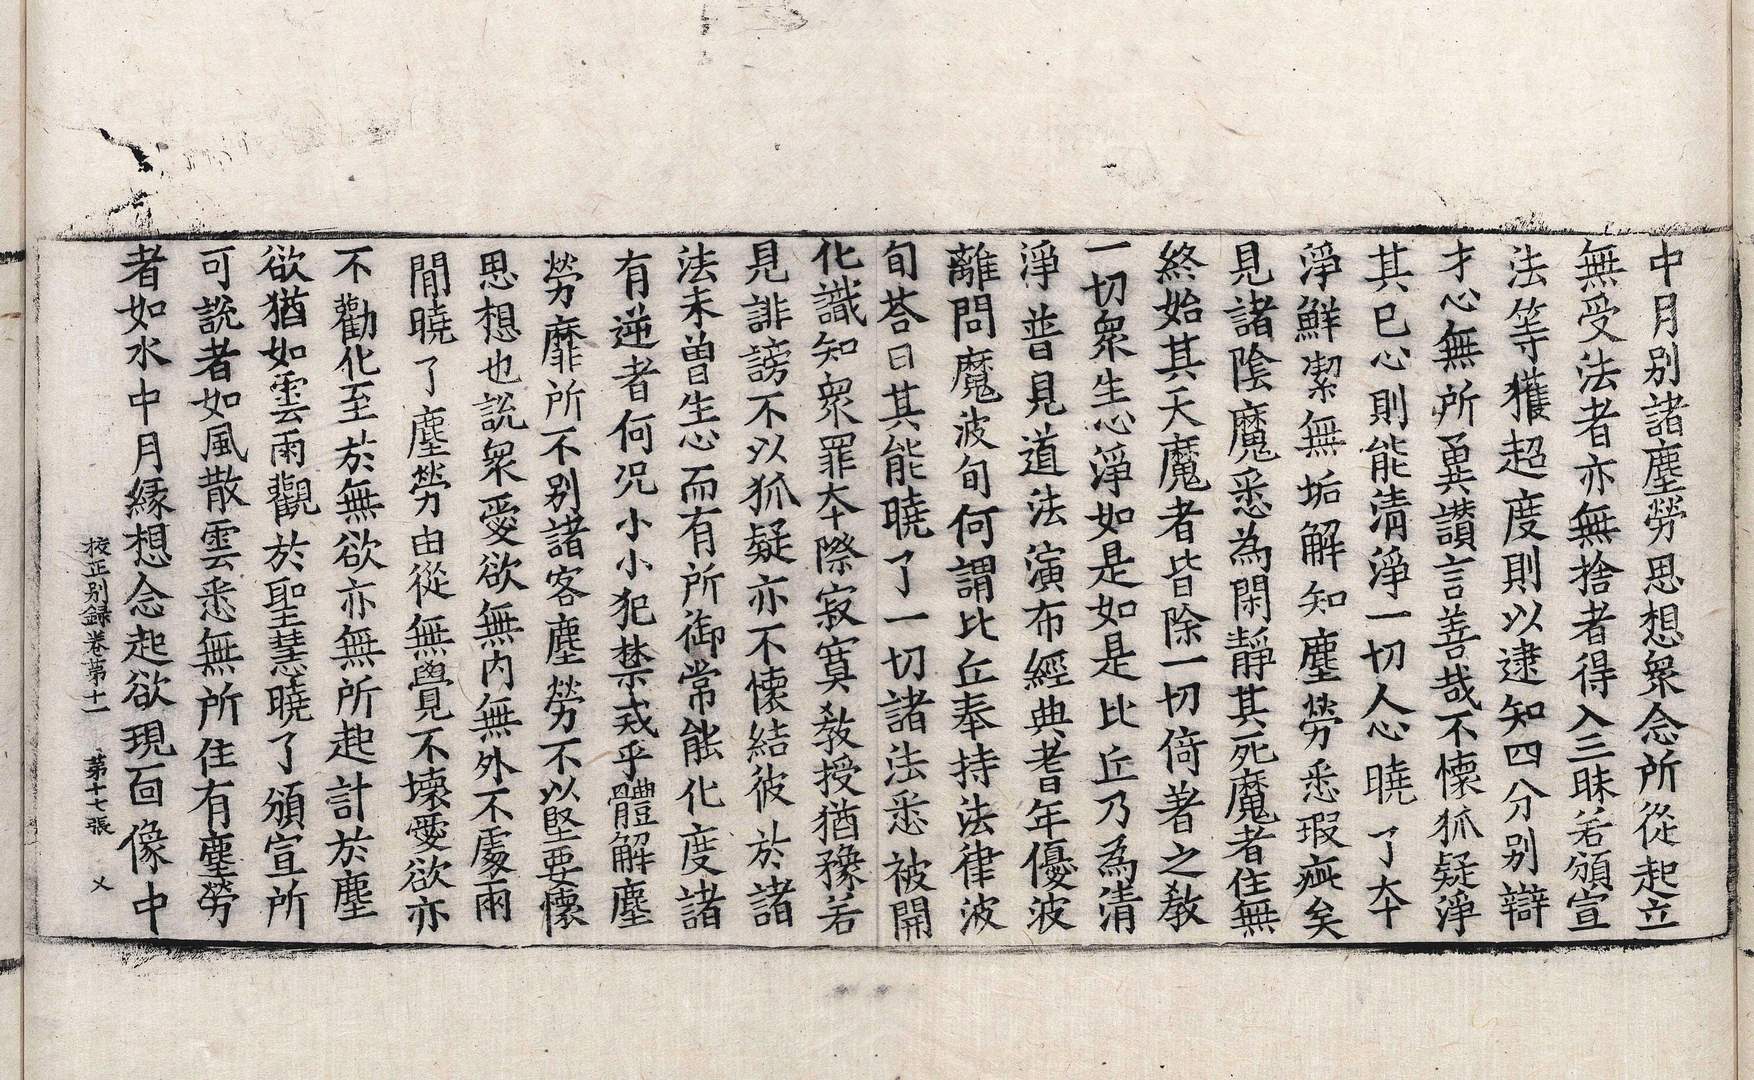 中月別諸塵勞思想衆念所從起立
無受法者亦無捨者得入三昧若頒宣
法等獲超度則以逮知四分別辯
才心無所異讃言善哉不懷狐疑淨
其已心則能清淨一切人心曉了夲
淨鮮潔無垢解知塵勞悉瑕疵矣
見諸陰魔悉為閑靜其死魔者住無
終始其天魔者皆除一切倚著之教
一切衆生心淨如是如是比丘乃為清
淨普見道法演布經典耆年優波
離問魔波旬何謂比丘奉持法律波
旬荅曰其能曉了一切諸法悉被開
化識知衆罪夲際寂寞教授猶豫若
見誹謗不以狐疑亦不懷結彼於諸
法未曽生心而有所御常能化度諸
有逆者何况小小犯禁戒乎體解塵
勞靡所不別諸客塵勞不以堅要懷
思想也説衆愛欲無内無外不處兩
閒曉了塵勞由從無覺不壞愛欲亦
不勸化至於無欲亦無所起計於塵
欲猶如雲雨觀於聖慧曉了頒宣所
可説者如風散雲悉無所住有塵勞
者如水中月縁想念起欲現面像中
校正別録卷苐十一 苐十七張 乂